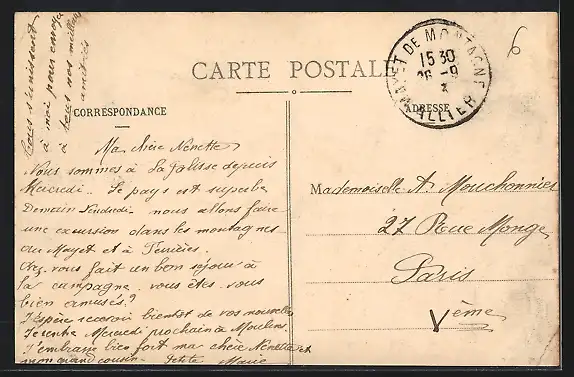 tous s'unissent
à moi pour envoyer
à tous nos meilleures
amitiés
CARTE POSTALE
CORRESPONDANCE
ADRESSE
MAYET DE MONTAGNE
15 30
26 -9
ALLIER
6
Ma chère Nenette
Nous sommes à La Palisse depuis
Mercredi. Le pays est superbe
Demain Vendredi nous allons faire
une excursion dans les montagnes
du Mayet et à Ferrières.
Avez-vous fait un bon séjour à
la campagne. vous êtes-vous
bien amusés?
J'espère recevoir bientôt de vos nouvelles
Je rentre Mercredi prochain à Moulins.
J'embrasse bien fort ma chère Nenette et
mon grand cousin. Petite Marie
Mademoiselle A. Mouchonnier
27 Rue Monge
Paris
Vème